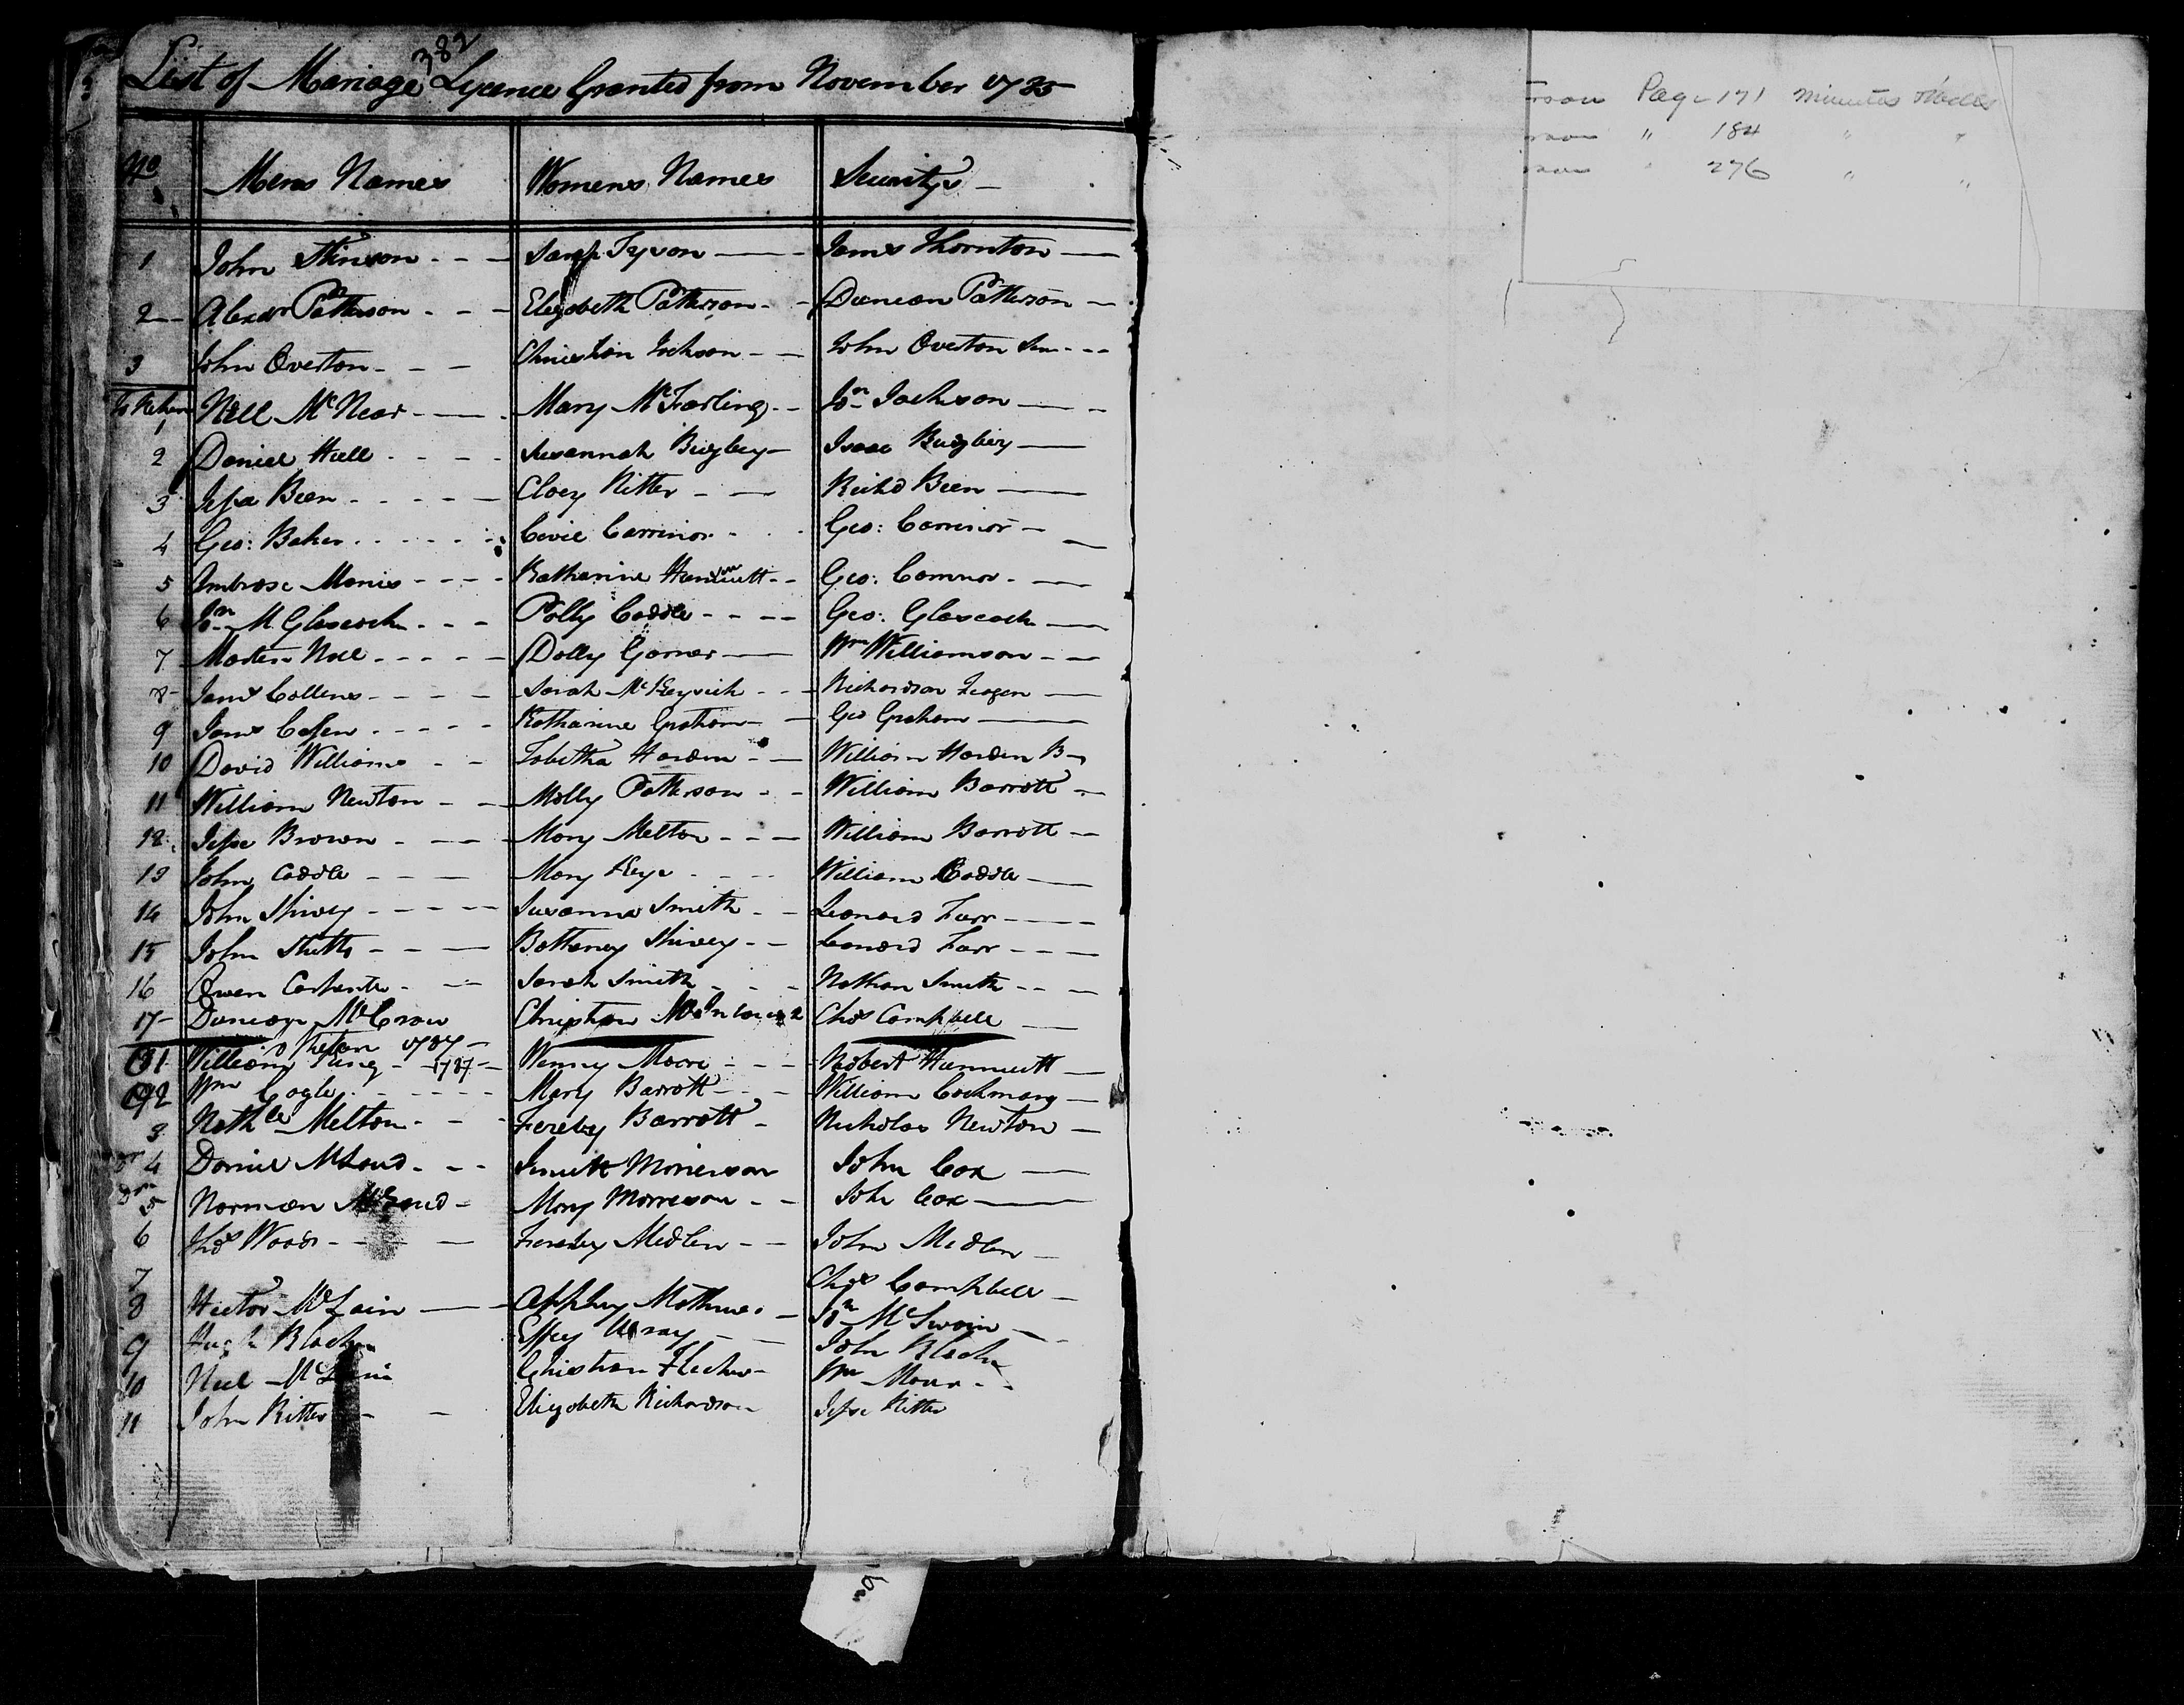 382
List of Mariage Lycence Granted from November 1785
No Mens Names Womens Names Securitys
1 John Stinson Sarah Tyson James Thornton
2 Alexdr Patterson Elezabeth Patterson Duncan Patterson
3 John Overton Christian Jackson John Overton Sen
Neill McNear Mary McFarling Jon Jackson
1
2 Daniel Hill Susannah Bugbey Isaac Bugbey
3 Jesse Been Cloey Ritter Richd Been
4 Geo: Baker Civie Carrinor Geo: Carrinor
5 Ambrose Manis Katharine Geo: Connor
6 Jon M. Glascock Polly Caddle Geo: Glascock
7 Marten Nall Dolly Garner Wm Williamson
8 Jams Collens Sarah Richardson Feagen
9 Jams Casey Katharine Graham Geo Graham
10 David Williams Tabitha Harden William Harden B
11 William Newton Molly Patterson William Barrott
12 Jesse Brown Mary Melton William Barrott
13 John Caddle Mary Keys William Caddle
14 John Shivey Susanna Smith Leonard Farr
15 John Stutts Botheney Shivey Leonard Farr
16 Owen Carpenter Sarah Smith Nathan Smith
17 Duncan McCraw Christian Chas Campbell
1787
1 William King 1787 Wenny Moore Robert Hunnicutt
2 Wm Cogle Mary Barrott William Cockmang
3 Nathle Melton Fereby Barrott Nicholas Newton
4 Daniel McLoud Jennett Morrison John Cox
5 Norman McLoud Mary Morrison John Cox
6 Thos Woods Fereby Medlen John Medlen
7 Chas Campbell
8 Hector McLain Apphey Jon McSwain
9 Hugh Black Effey John Black
10 Neel Christian Flecher Wm
11 John Ritter Elizabeth Richardson Jesse Ritter
Page 171 minutes
" 184 " "
" 276 " "